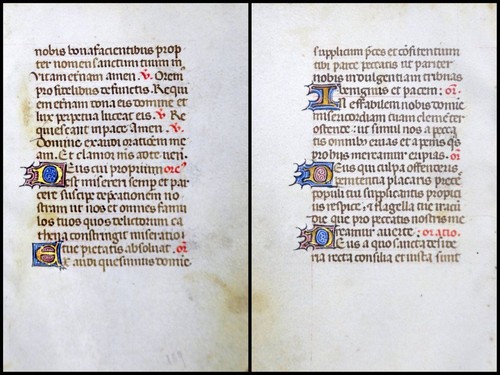 nobis bona facientibus prop
ter nomen sanctum tuum in
vitam eternam amen. V. Orem
pro fidelibus defunctis. Requi
em eternam dona eis domine et
lux perpetua luceat eis. V. Re
quiescant in pace Amen. V.
Domine exaudi orationem me
am. Et clamor m̄s ad te veni
Deus cui proprium orō
est misereri semper et par
cere suscipe deprecationem no
stram ut nos et omnes famu
los tuos quos delictorum ca
thena constringit miseratio
tue pietatis absoluat. or̄
Exaudi quesumus domine
supplicum p̄ces et cōfitentium
tibi parce peccatis ut pariter
nobis indulgentiam tribuas
benignus et pacem: or̄.
Ineffabilem nobis domine
misericordiam tuam clementer
ostende: ut simul nos a pecca
tis omnibus eruas et a penis q̄s
pro his meremur eripias. or̄
Deus qui culpa offenderis
penitentia placaris preces
populi tui supplicantis propiti
us respice, et flagella tue iracū
die que pro peccatis nostris me
remur averte: oratio.
Deus a quo sancta deside
ria recta consilia et iusta sunt